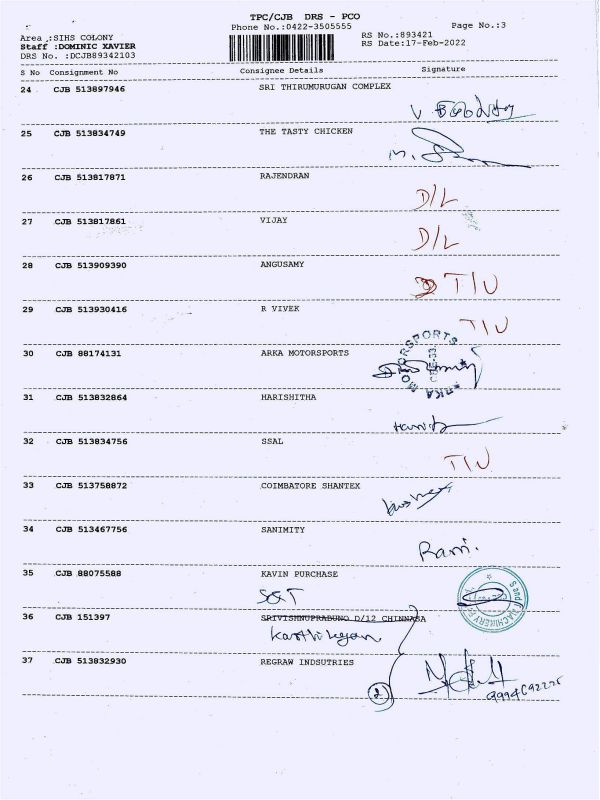 TPC/CJB DRS - PCO
Phone No.:0422-3505555 Page No.:3
Area :SIHS COLONY RS No.:893421
Staff :DOMINIC XAVIER RS Date:17-Feb-2022
DRS No. :DCJB89342103
S No Consignment No Consignee Details Signature
24 CJB 513897946 SRI THIRUMURUGAN COMPLEX
25 CJB 513834749 THE TASTY CHICKEN
26 CJB 513817871 RAJENDRAN
D/L
27 CJB 513817861 VIJAY
D/L
28 CJB 513909390 ANGUSAMY
T/U
29 CJB 513930416 R VIVEK
T/U
30 CJB 88174131 ARKA MOTORSPORTS
ARKA MOTORSPORTS
31 CJB 513832864 HARISHITHA
32 CJB 513834756 SSAL
T/U
33 CJB 513758872 COIMBATORE SHANTEX
34 CJB 513467756 SANIMITY
Rami.
35 CJB 88075588 KAVIN PURCHASE
S&T
36 CJB 151397 SRIVISHNUPRABUNO D/12 CHINNASA
37 CJB 513832930 REGRAW INDSUTRIES
2